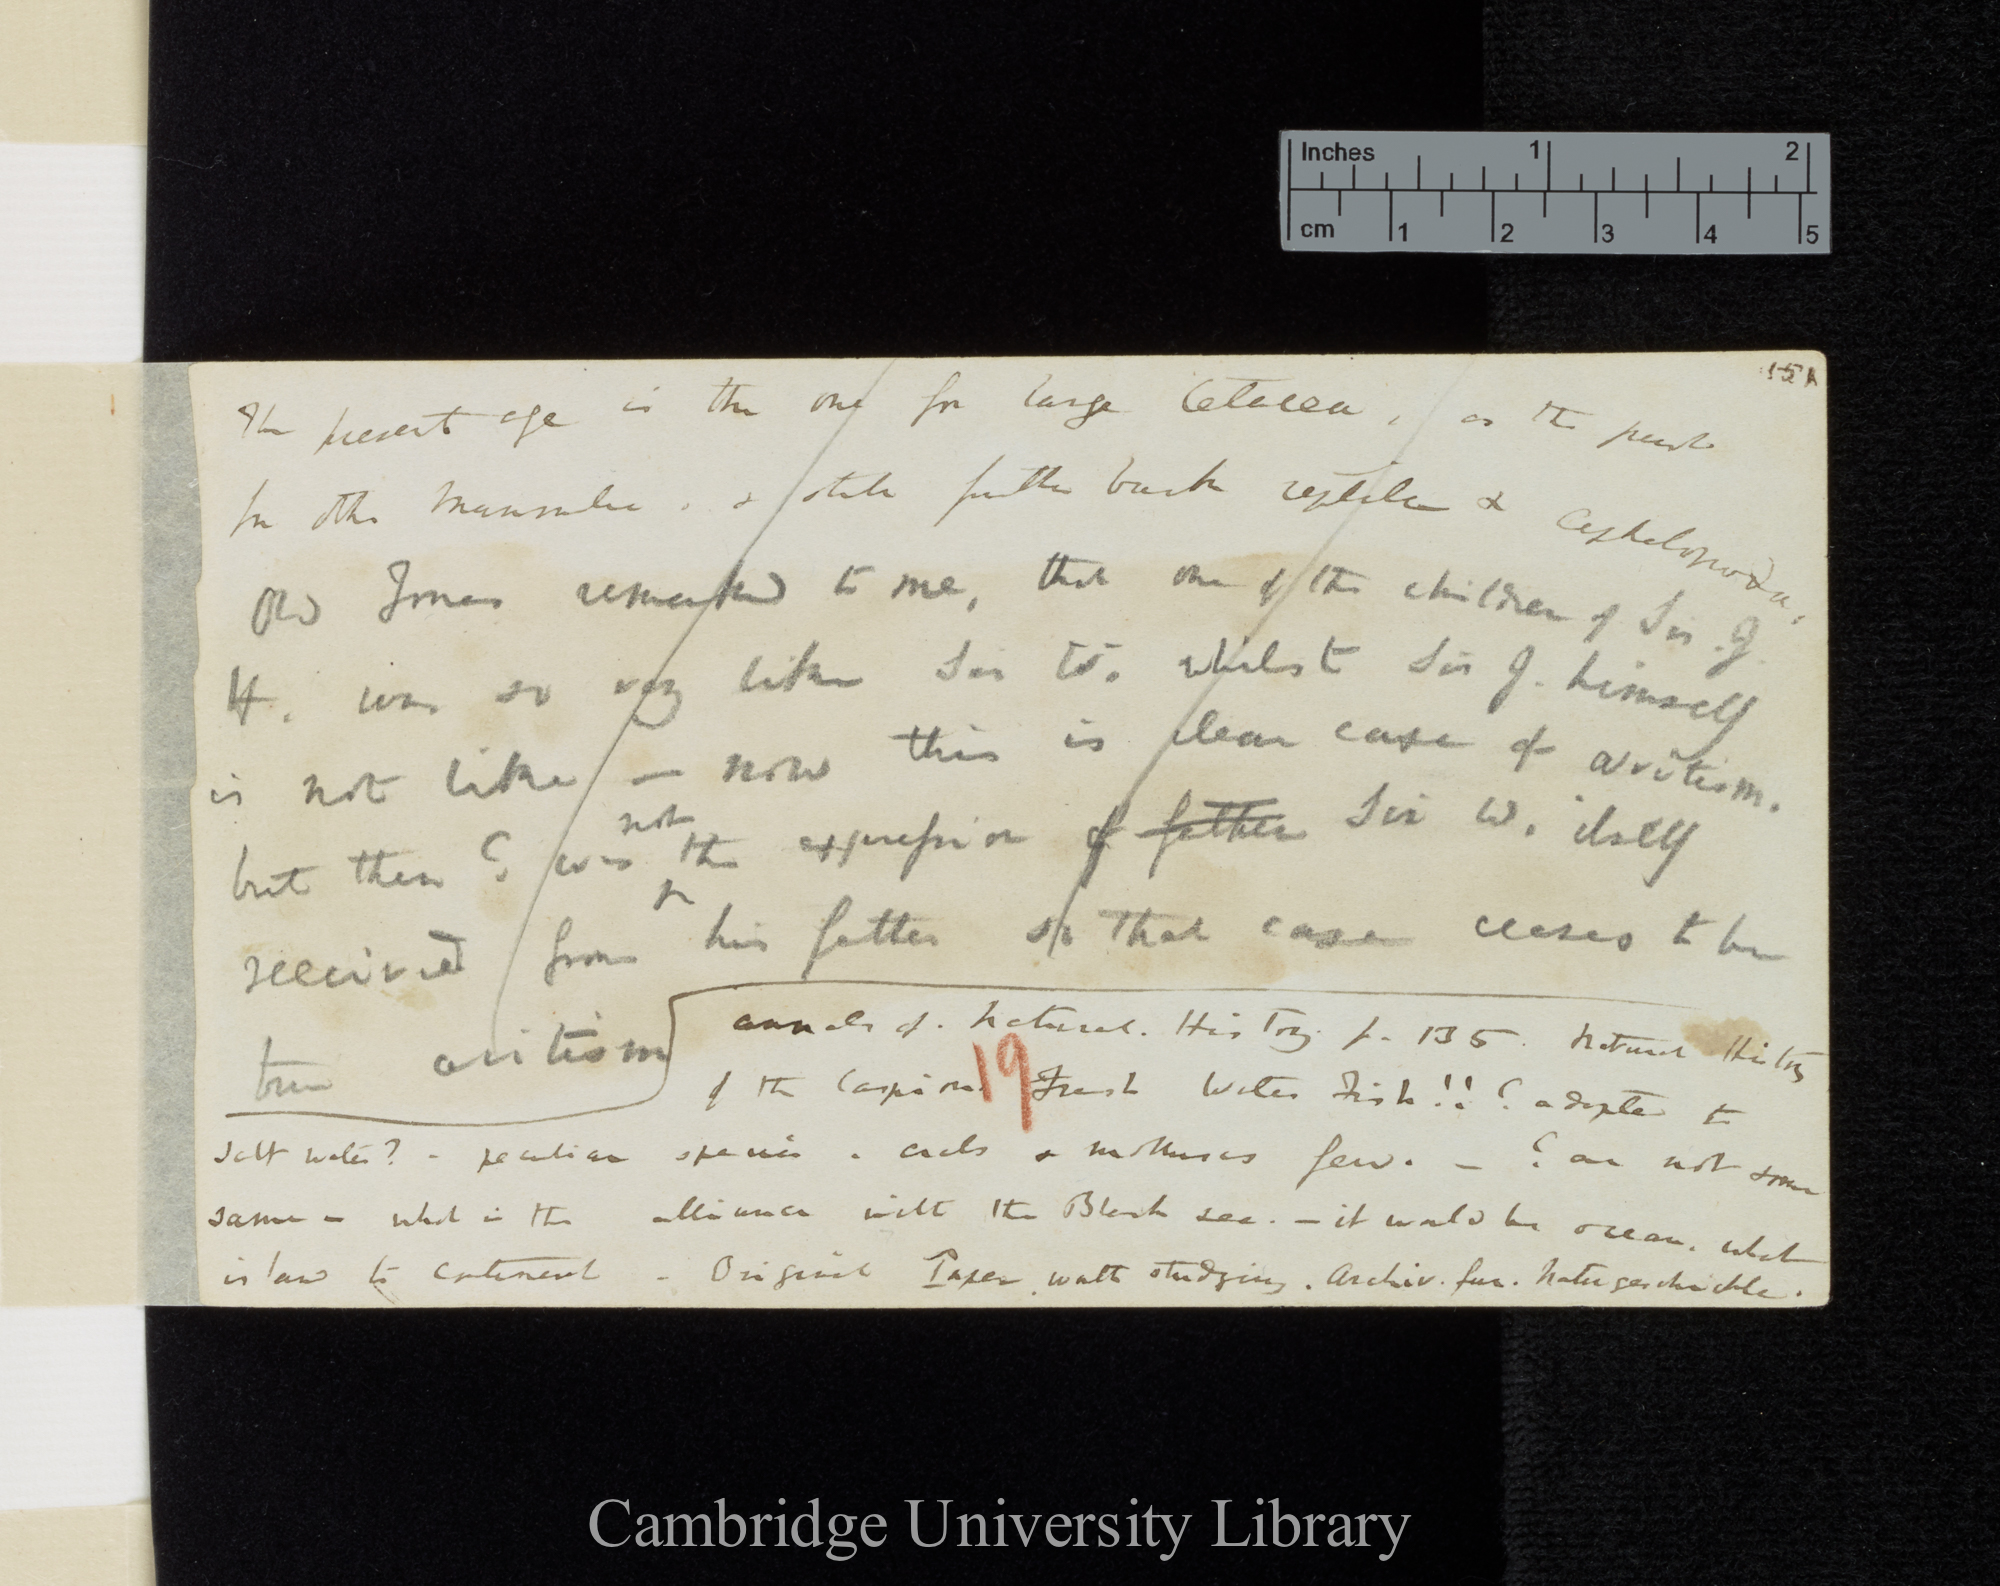 Inches 1 2
cm 1 2 3 4 5
151
The present age is the one for large Cetacea, as the past
for other Mammalia. & still further back reptiles & Cephalopoda.
Old Jones remarked to me, that one of the children of Sir J.
H. was so very like Sir W. whilst Sir J. himself
is not like — now this is clear case of avitism.
but then ¿ was not the expression of father Sir W. itself
received from his father so that case ceases to be
true avitism
Annals of. Natural. History. p. 135. Natural History
of the Caspian Fresh Water Fish!! ¿ adapted to
19
salt water? - peculiar species. & molluscs few. — ¿ are not some
same — what is the alliance with the Black sea. — it would be ocean, what
is land to continent - Original Paper worth studying. Archiv. fur. Naturgeschichte.
Cambridge University Library